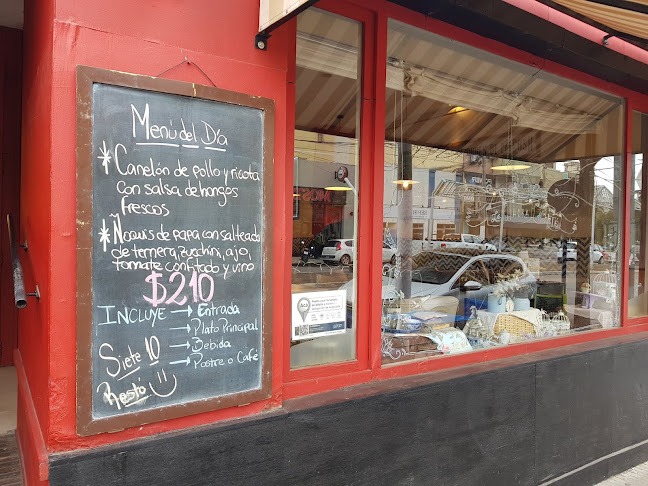 Menú del Día
* Canelón de pollo y ricota
con salsa de hongos
frescos
* Ñoquis de papa con salteado
de ternera, zucchini, ajo,
tomate confitado y vino
$210
INCLUYE → Entrada
→ Plato Principal
→ Bebida
→ Postre o Café
Siete 10
Resto